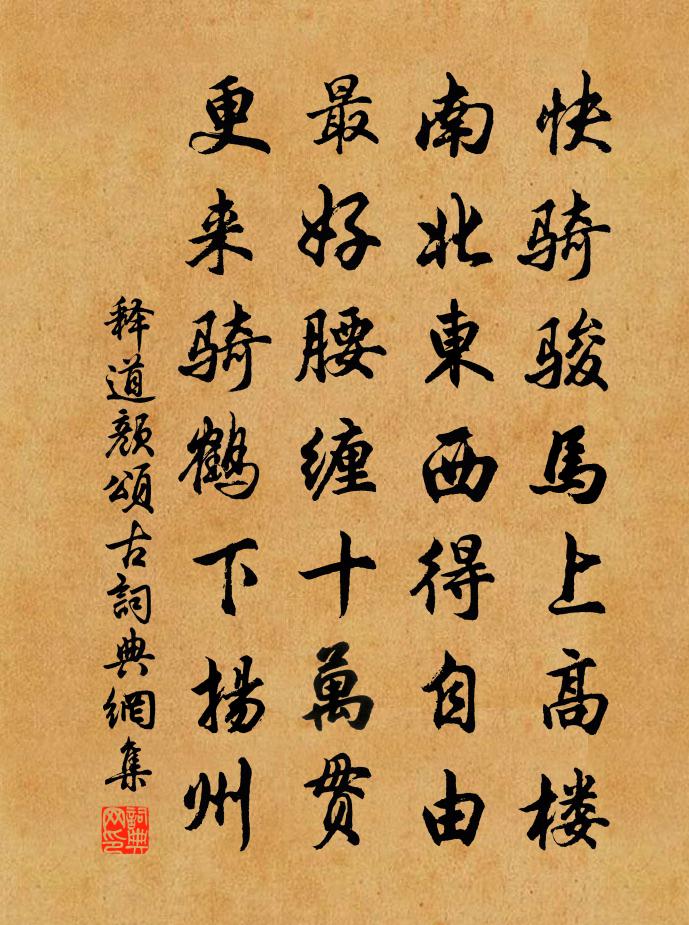 快骑骏馬上高楼
南北東西得自由
最好腰缠十萬貫
更来骑鹤下揚州
释道颜頌古詞典網集
詞典网印